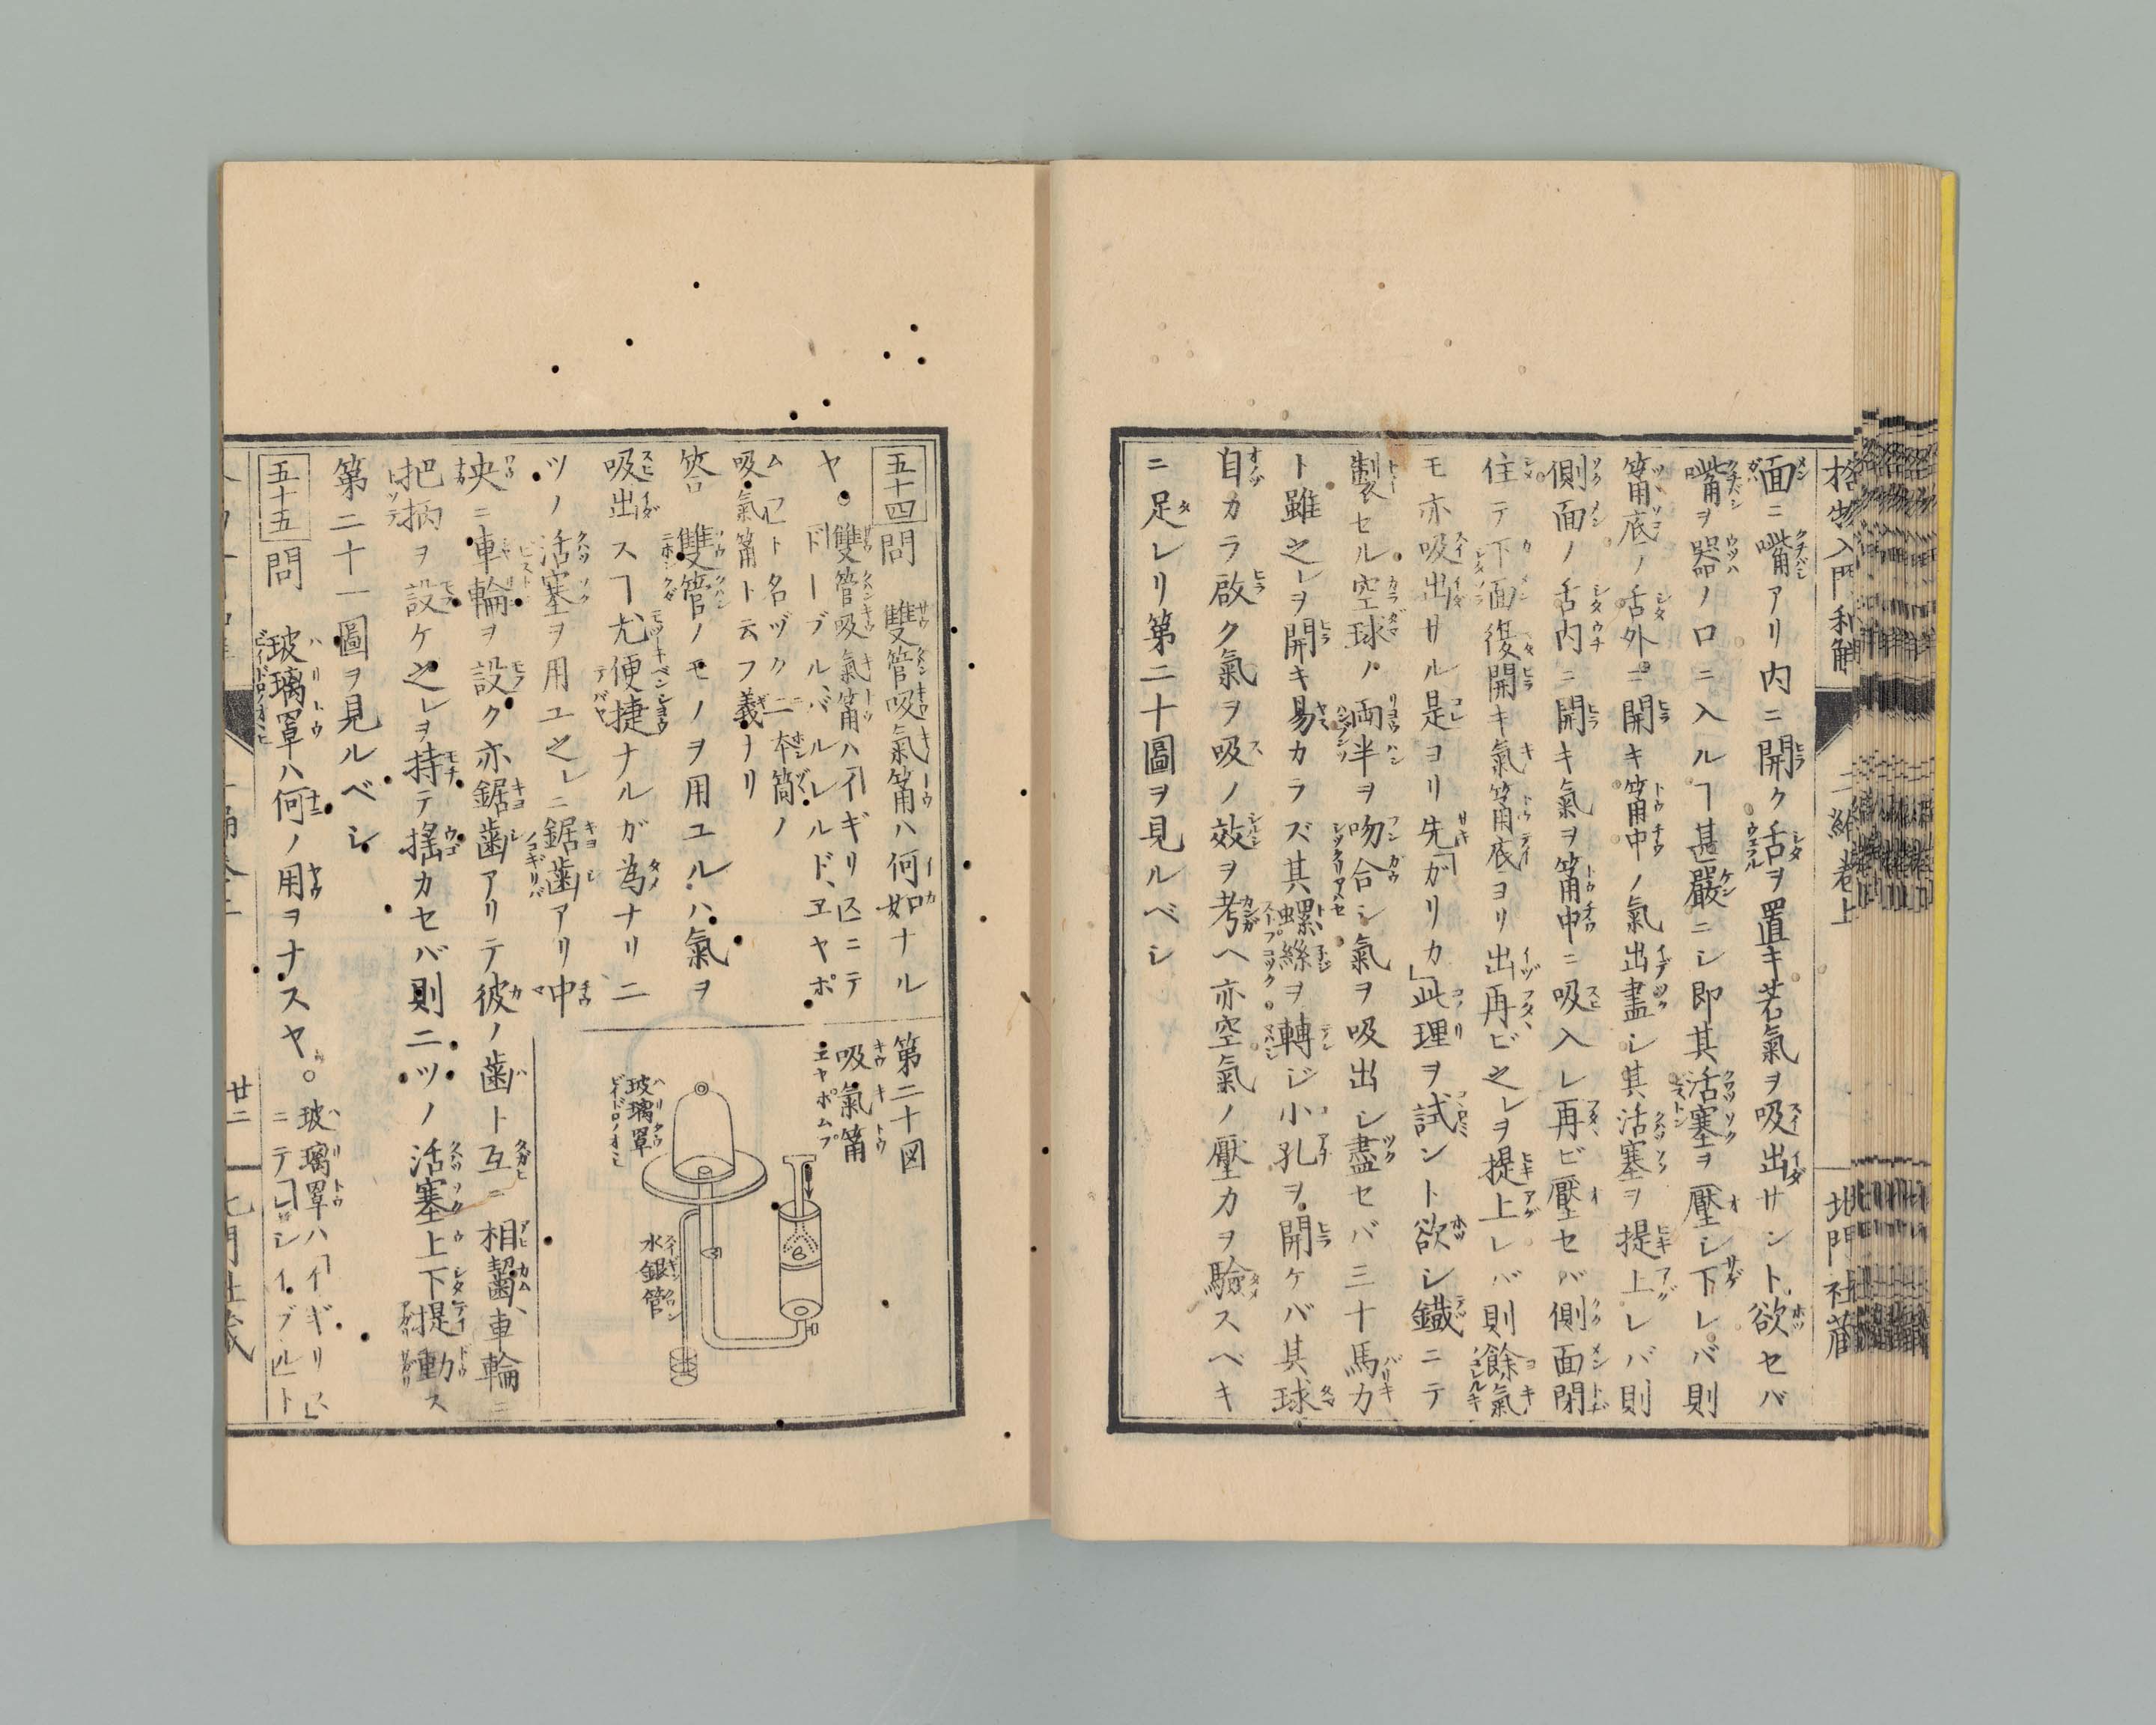 格物入門和解
二編巻上
北門社蔵
面ニ嘴アリ内ニ開ク舌ヲ置キ若氣ヲ吸出サント欲セバ
嘴ヲ器ノ口ニ入ルヿ甚嚴ニシ即其活塞ヲ壓シ下レバ則
筩底ノ舌外ニ開キ筩中ノ氣出盡シ其活塞ヲ提上レバ則
側面ノ舌内ニ開キ氣ヲ筩中ニ吸入レ再ビ壓セバ側面閉
住テ下面復開キ氣筩底ヨリ出再ビ之レヲ提上レバ則餘氣
モ亦吸出サル是ヨリ先「ガリカ」此理ヲ試ント欲シ鐵ニテ
製セル空球ノ両半ヲ吻合シ氣ヲ吸出シ盡セバ三十馬力
ト雖之レヲ開キ易カラズ其螺絲ヲ轉ジ小孔ヲ開ケバ其球
自カラ啟ク氣ヲ吸ノ效ヲ考ヘ亦空氣ノ壓力ヲ驗スベキ
ニ足レリ第二十圖ヲ見ルベシ
五十四問 雙管吸氣筩ハ何如ナル
ヤ。雙管吸氣筩ハ「イギリス」ニテ
「ドーブル、バルレルド、ヱヤポ
ムプ」ト名ヅク二本筒ノ
吸氣筩ト云フ義ナリ
答 雙管ノモノヲ用ユルハ氣ヲ
吸出スヿ尤便捷ナルガ為ナリ二
ツノ活塞ヲ用ユ之レニ鋸歯アリ中
央ニ車輪ヲ設ク亦鋸歯アリテ彼ノ歯ト互ニ相齧ム車輪ニ
把柄ヲ設ケ之レヲ持テ揺カセバ則二ツノ活塞上下提動ス
第二十一圖ヲ見ルベシ
第二十図
吸氣筩
ヱヤポムプ
玻璃罩
水銀管
五十五問 玻璃罩ハ何ノ用ヲナスヤ。○玻璃罩ハ「イギリス」
ニテ「レシイブル」ト
廿二